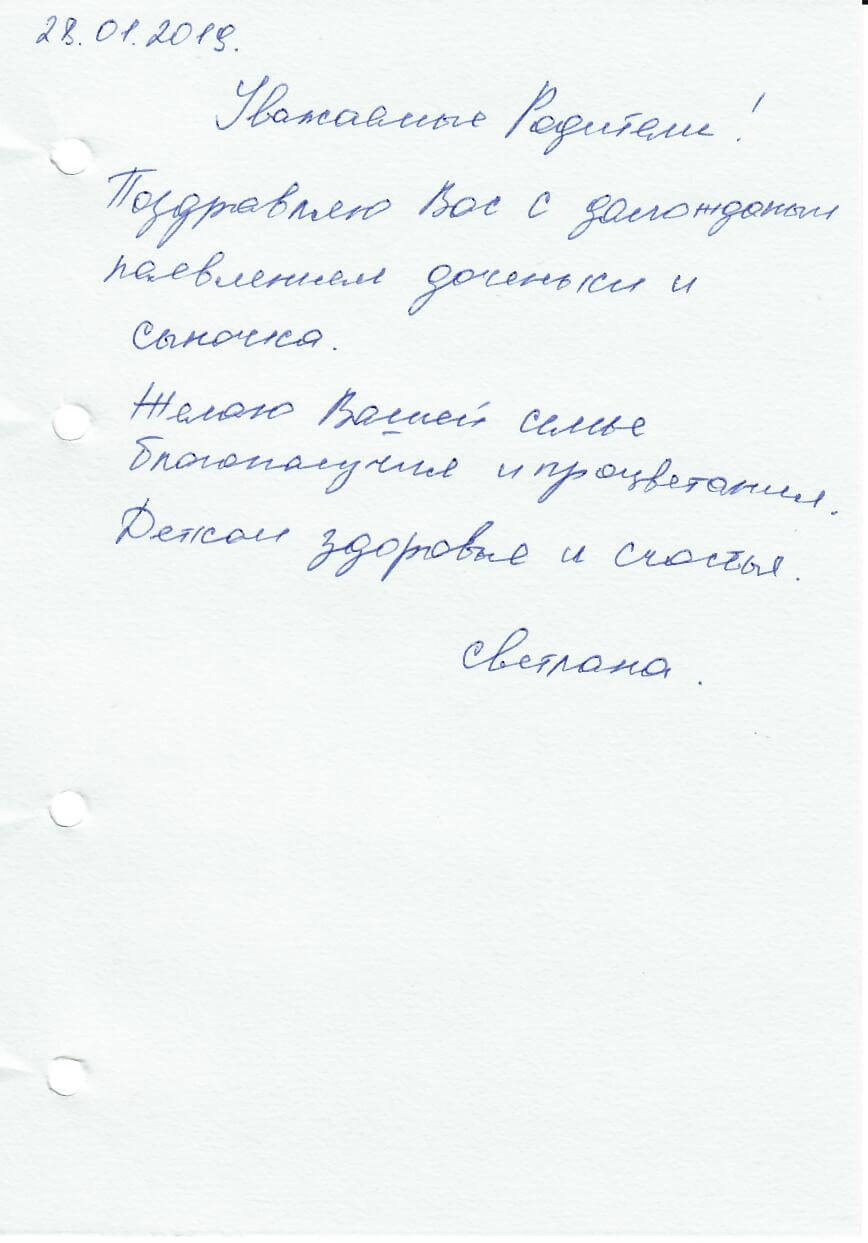 28.01.2019.
Уважаемые Родители!
Поздравляю Вас с долгожданым
паевлением доченьки и
сыночка.
Желаю Вашей семье
благополучия и процветания.
Деткам здоровье и счастья.
Светлана.